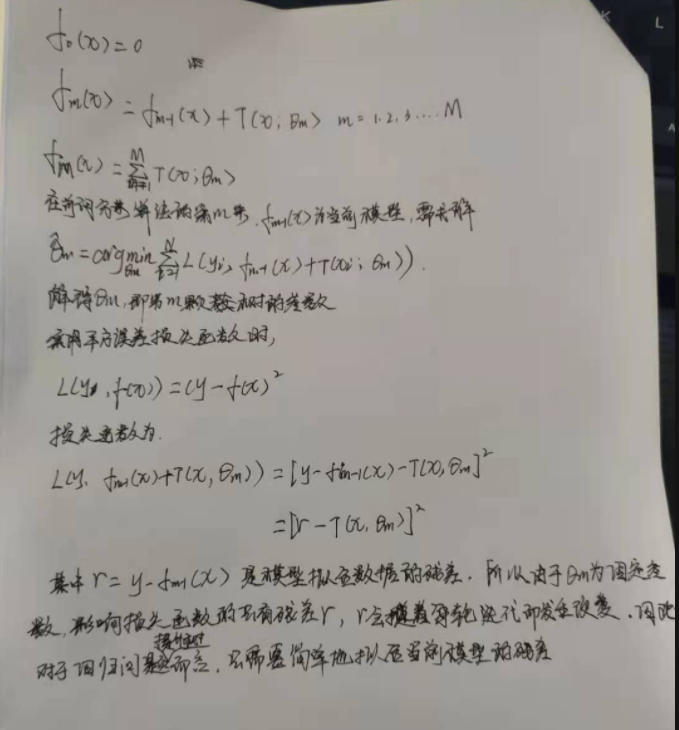 f₀(x)=0
fₘ(x) = fₘ₋₁(x) + T(x; θₘ) m = 1.2.3....M
fₘ(x) = ∑ᴹₘ₌₁ T(x; θₘ)
在前向分步算法的第m步, fₘ₋₁(x)为当前模型, 需求解
θ̂ₘ = arg min_θₘ ∑ᴺᵢ₌₁ L(yᵢ, fₘ₋₁(x) + T(xᵢ; θₘ)).
解得θₘ, 即第m颗树的参数
采用平方误差损失函数时,
L(y, f(x)) = (y - f(x))²
损失函数为.
L(y. fₘ₋₁(x)+T(x, θₘ)) = [y - fₘ₋₁(x) - T(x, θₘ)]²
= [r - T(x, θₘ)]²
其中 r = y - fₘ₋₁(x) 是模型拟合数据的残差. 所以由于θₘ为固定变
数, 影响损失函数的只有残差r, r会随着每轮迭代即发生改变. 因此
对于回归问题提升树而言, 只需要简单地拟合当前模型的残差